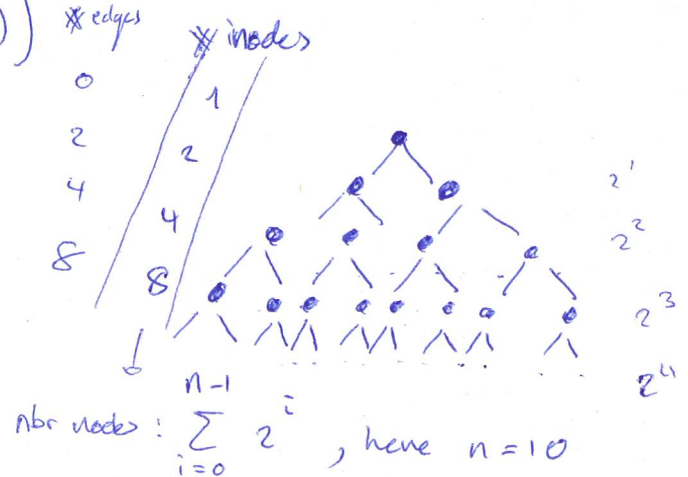 ) # edges # inodes
0 1
2 2
4 4
8 8
2^1
2^2
2^3
2^4
nbr nodes : \sum_{i=0}^{n-1} 2^i , here n = 10